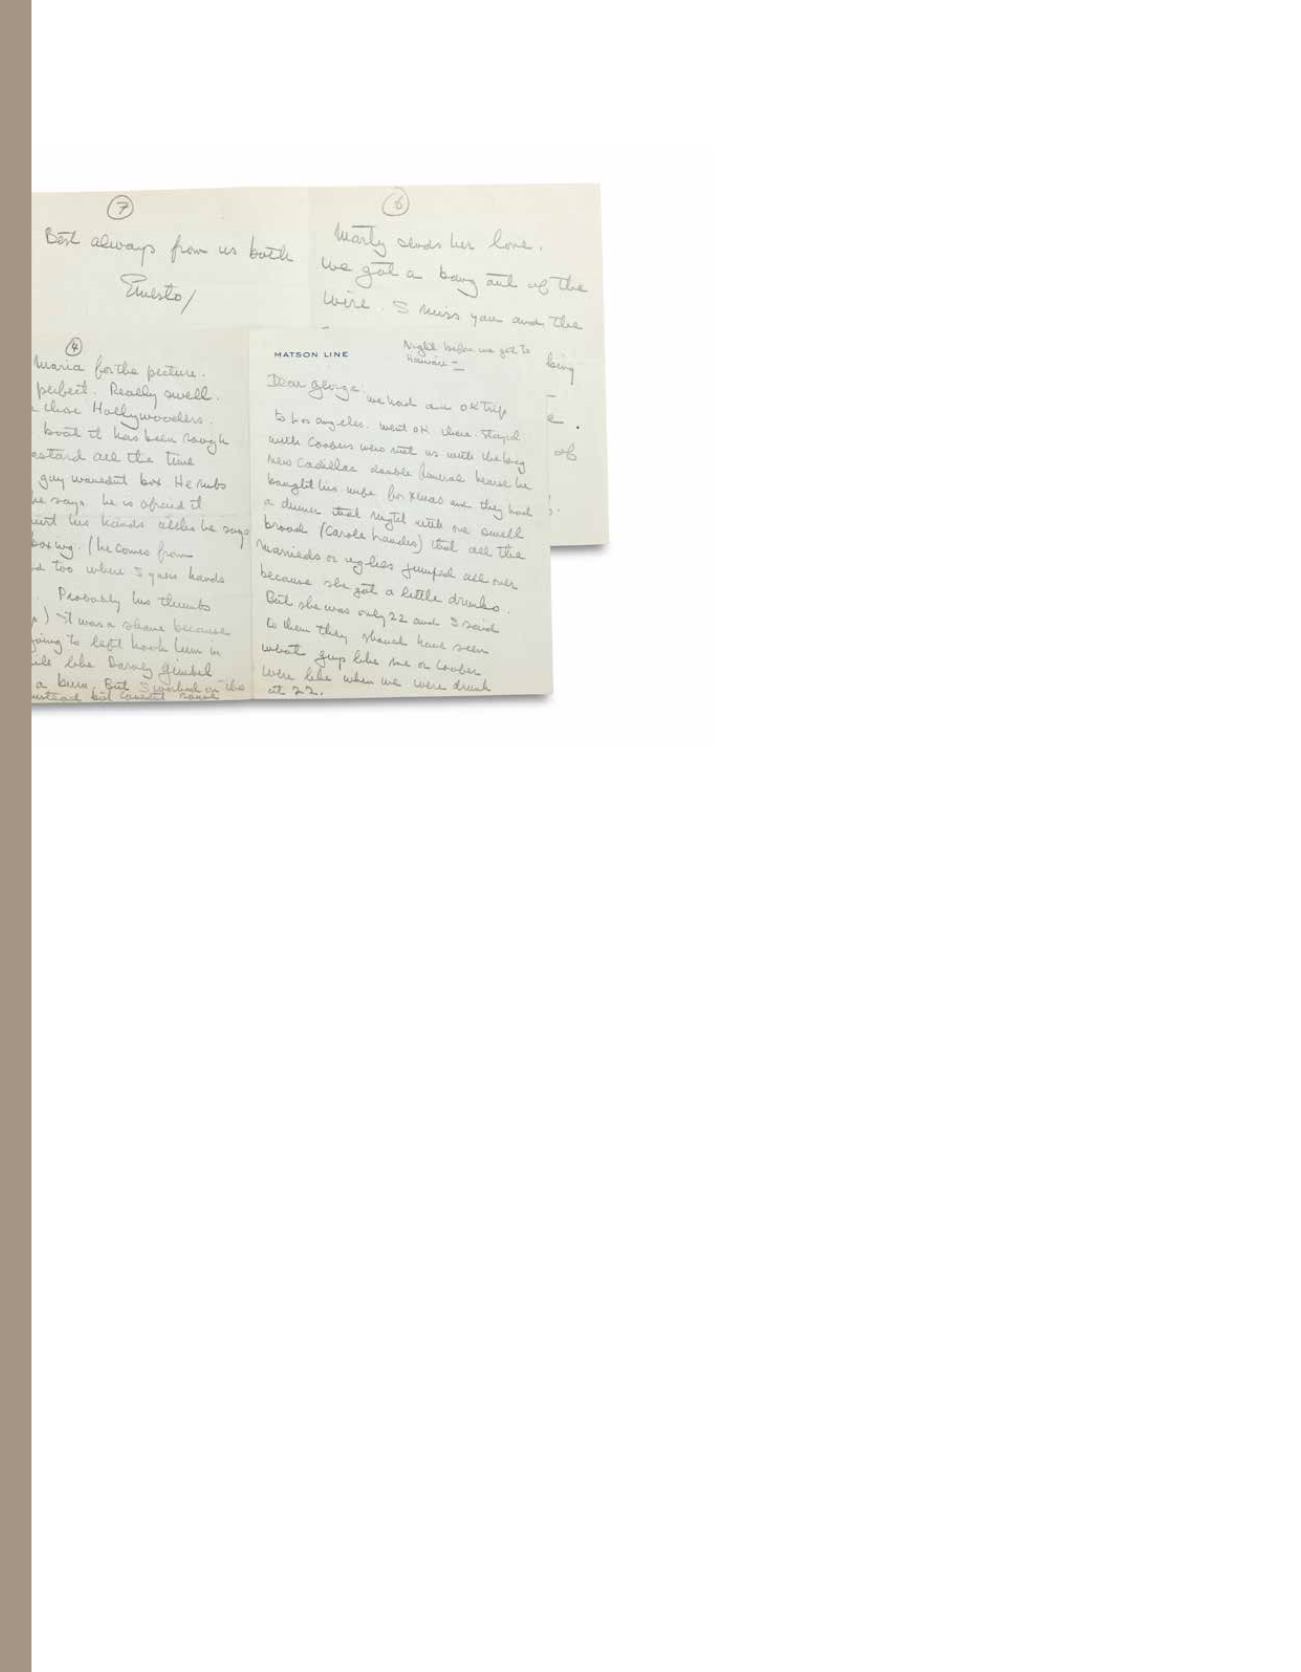 7
Best always from us both
Ernesto/
6
Marty sends her love.
We got a bang out of the
wire. I miss you and the
being
e.
of
4
Maria for the picture.
perfect. Really swell.
those Hollywooders.
boat it has been rough
bastard all the time
guy wouldn't box He rubs
he says he is afraid it
hurt his hands altho he says
boxing. (he comes from
too where I guess hands
. Probably his thumbs
) It was a shame because
going to left hook him in
like Barney Gimbel
a bum. But I worked on the
instead but
MATSON LINE
Night before we get to
Hawaii—
Dear George: we had an OK trip
to Los Angeles. went OK there. Stayed
with Coopers who met us with the big
new Cadillac double funeral hearse he
bought his wife for Xmas and they had
a dinner that night with one swell
broad (Carole Landis) that all the
marrieds or uglies jumped all over
because she got a little drunko.
But she was only 22 and I said
to them they should have seen
what guys like me or Cooper
were like when we were drunk
at 22.